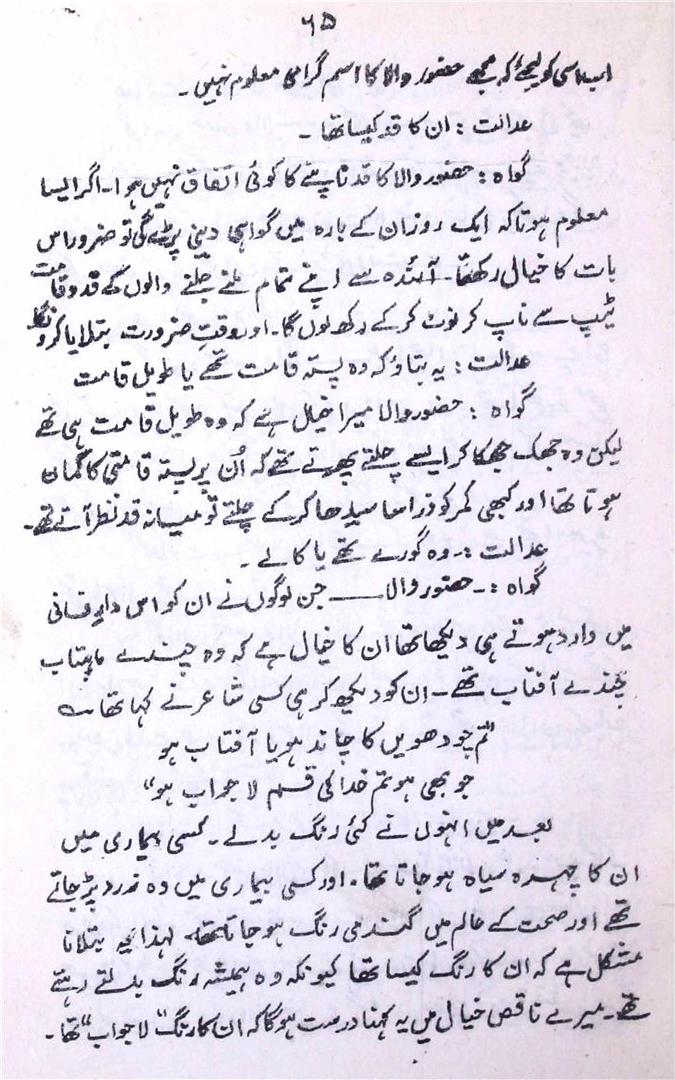 ۶۵
ایسا سی کو لیجئے کہ مجھے حضور والا کا اسم گرامی معلوم نہیں۔
عدالت : ان کا قد کیسا تھا۔
گواہ : حضور والا کا قد ناپنے کا کوئی اتفاق نہیں ہوا۔ اگر ایسا
معلوم ہوتا کہ ایک روز ان کے بارہ میں گواہی دینی پڑے گی تو ضرور اس
بات کا خیال رکھتا۔ آئندہ سے اپنے تمام ملنے جلنے والوں کے قد و قامت
ٹیپ سے ناپ کر نوٹ کر کے رکھ لوں گا۔ اور وقت ضرورت بتلایا کرونگا
عدالت : یہ بتاؤ کہ وہ پستہ قامت تھے یا طویل قامت
گواہ : حضور والا میرا خیال ہے کہ وہ طویل قامت ہی تھے
لیکن وہ جھک جھکا کر ایسے چلتے پھرتے تھے کہ اُن پر پستہ قامتی کا گمان
ہوتا تھا اور کبھی کمر کو ذرا سا سیدھا کر کے چلتے تو میانہ قد نظر آتے تھے۔
عدالت :۔ وہ گورے تھے یا کالے۔
گواہ :۔ حضور والا ـــــ جن لوگوں نے ان کو اس دار فانی
میں وارد ہوتے ہی دیکھا تھا ان کا خیال ہے کہ وہ چندے ماہتاب
چندے آفتاب تھے۔ ان کو دیکھ کر ہی کسی شاعر نے کہا تھا ؎
"تم چودھویں کا چاند ہو یا آفتاب ہو
جو بھی ہو تم خدا کی قسم لا جواب ہو"
بعد میں انہوں نے کئی رنگ بدلے۔ کسی بیماری میں
ان کا چہرہ سیاہ ہو جاتا تھا۔ اور کسی بیماری میں وہ زرد پڑ جاتے
تھے اور صحت کے عالم میں گندمی رنگ ہو جاتا تھا۔ لہذا یہ بتلانا
مشکل ہے کہ ان کا رنگ کیسا تھا کیونکہ وہ ہمیشہ رنگ بدلتے رہتے
تھے۔ میرے ناقص خیال میں یہ کہنا درست ہوگا کہ ان کا رنگ "لا جواب" تھا۔